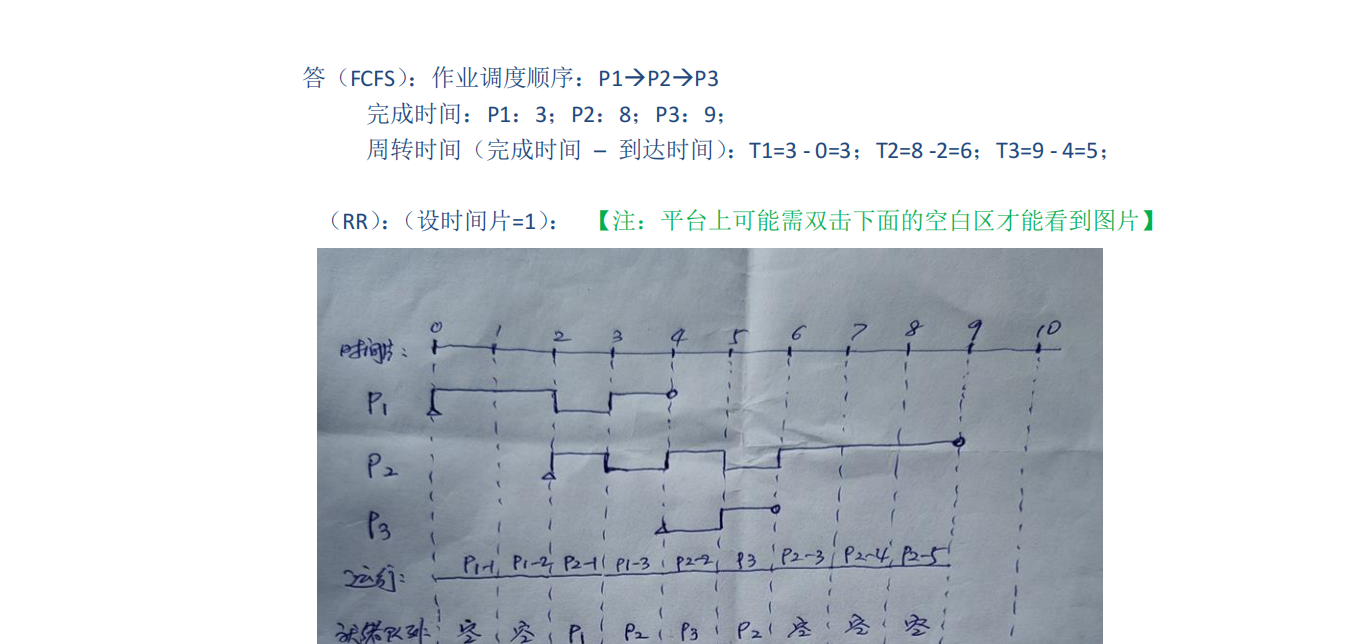 答（FCFS）：作业调度顺序：P1→P2→P3
完成时间：P1：3；P2：8；P3：9；
周转时间（完成时间 – 到达时间）：T1=3 - 0=3；T2=8 -2=6；T3=9 - 4=5；
（RR）：（设时间片=1）： 【注：平台上可能需双击下面的空白区才能看到图片】
时间片： 0 1 2 3 4 5 6 7 8 9 10
P1
P2
P3
运行： P1-1 P1-2 P2-1 P1-3 P2-2 P3 P2-3 P2-4 P2-5
就绪队列： 空 空 P1 P2 P3 P2 空 空 空